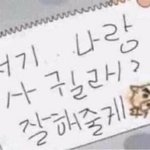 저기.. 나랑
사 귈래?
잘해줄게